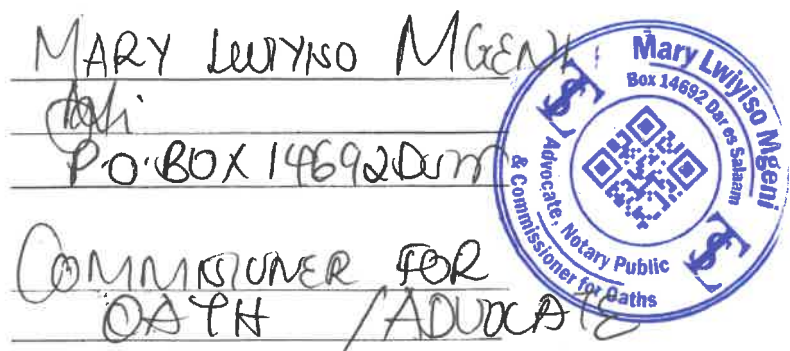 MARY LWIYISO MGENI
P.O.BOX 14692 Dsm
COMMISSIONER FOR
OATH /ADVOCATE
Mary Lwiyiso Mgeni
Box 14692 Dar es Salaam
Advocate, Notary Public
& Commissioner for Oaths